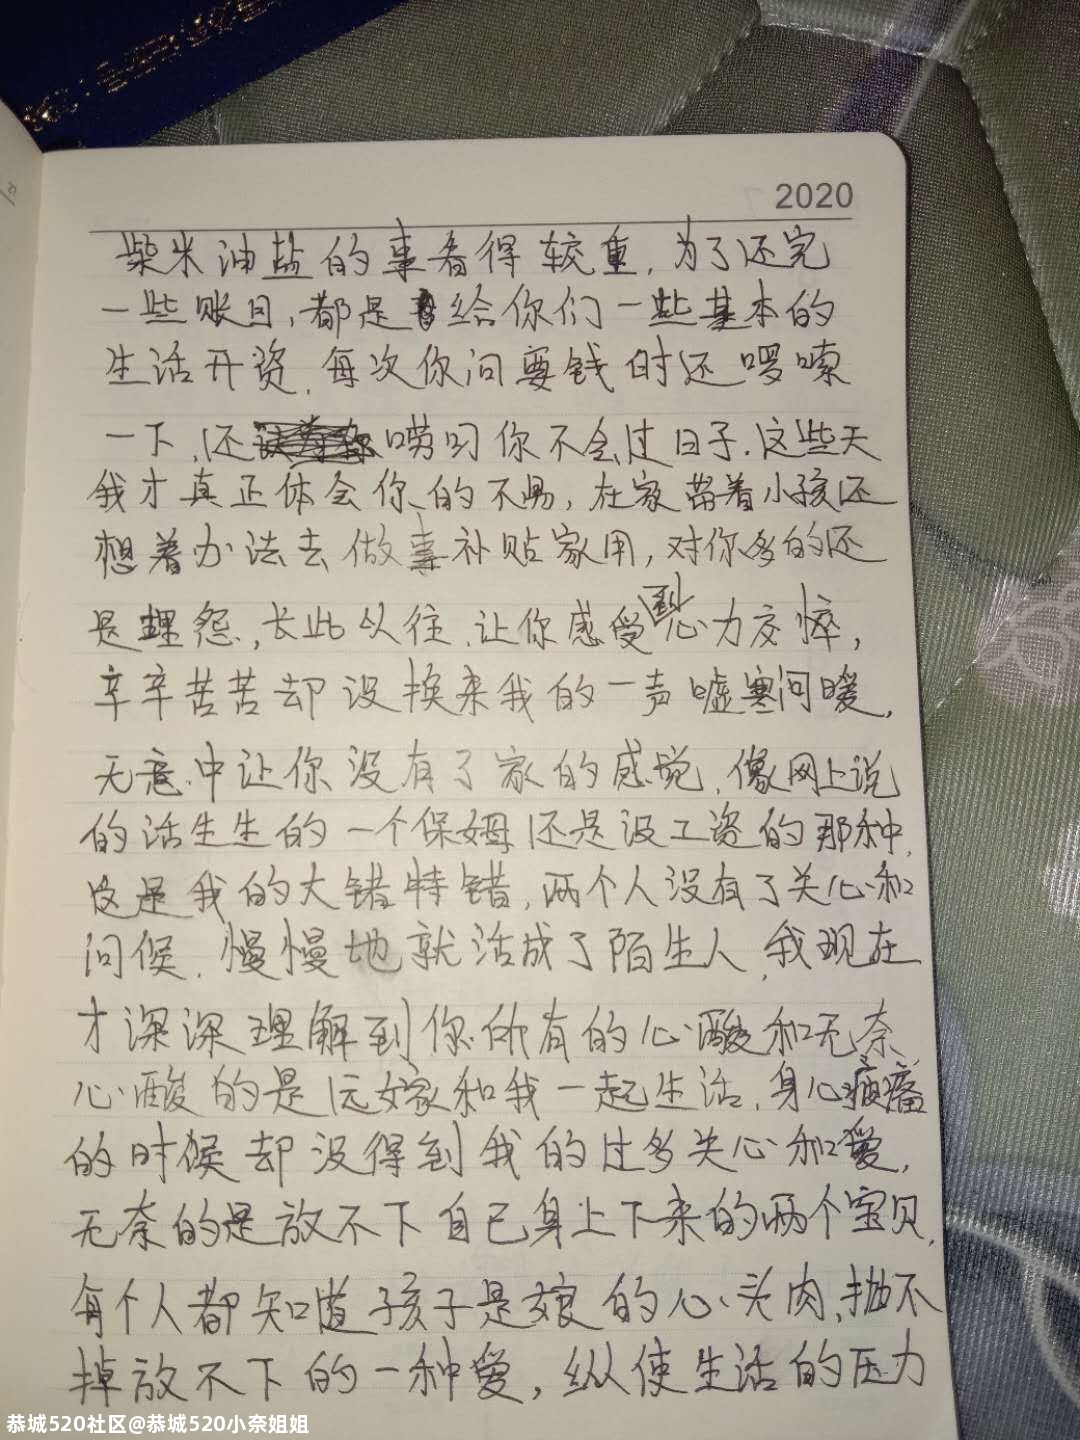 2020
柴米油盐的事看得较重，为了还完
一些账目，都是给你们一些基本的
生活开资，每次你问要钱时还啰嗦
一下，还唠叨你不会过日子．这些天
我才真正体会你的不易，在家带着小孩还
想着办法去做事补贴家用，对你多的还
是埋怨，长此以往，让你感受到心力交悴，
辛辛苦苦却没换来我的一声嘘寒问暖，
无意中让你没有了家的感觉，像网上说
的活生生的一个保姆还是没工资的那种，
这是我的大错特错，两个人没有了关心和
问候，慢慢地就活成了陌生人，我现在
才深深理解到你所有的心酸和无奈
心酸的是远嫁和我一起生活，身心疲痛
的时候却没得到我的过多关心和爱，
无奈的是放不下自己身上下来的两个宝贝，
每个人都知道孩子是娘的心头肉，抛不
掉放不下的一种爱，纵使生活的压力
恭城520社区@恭城520小奈姐姐